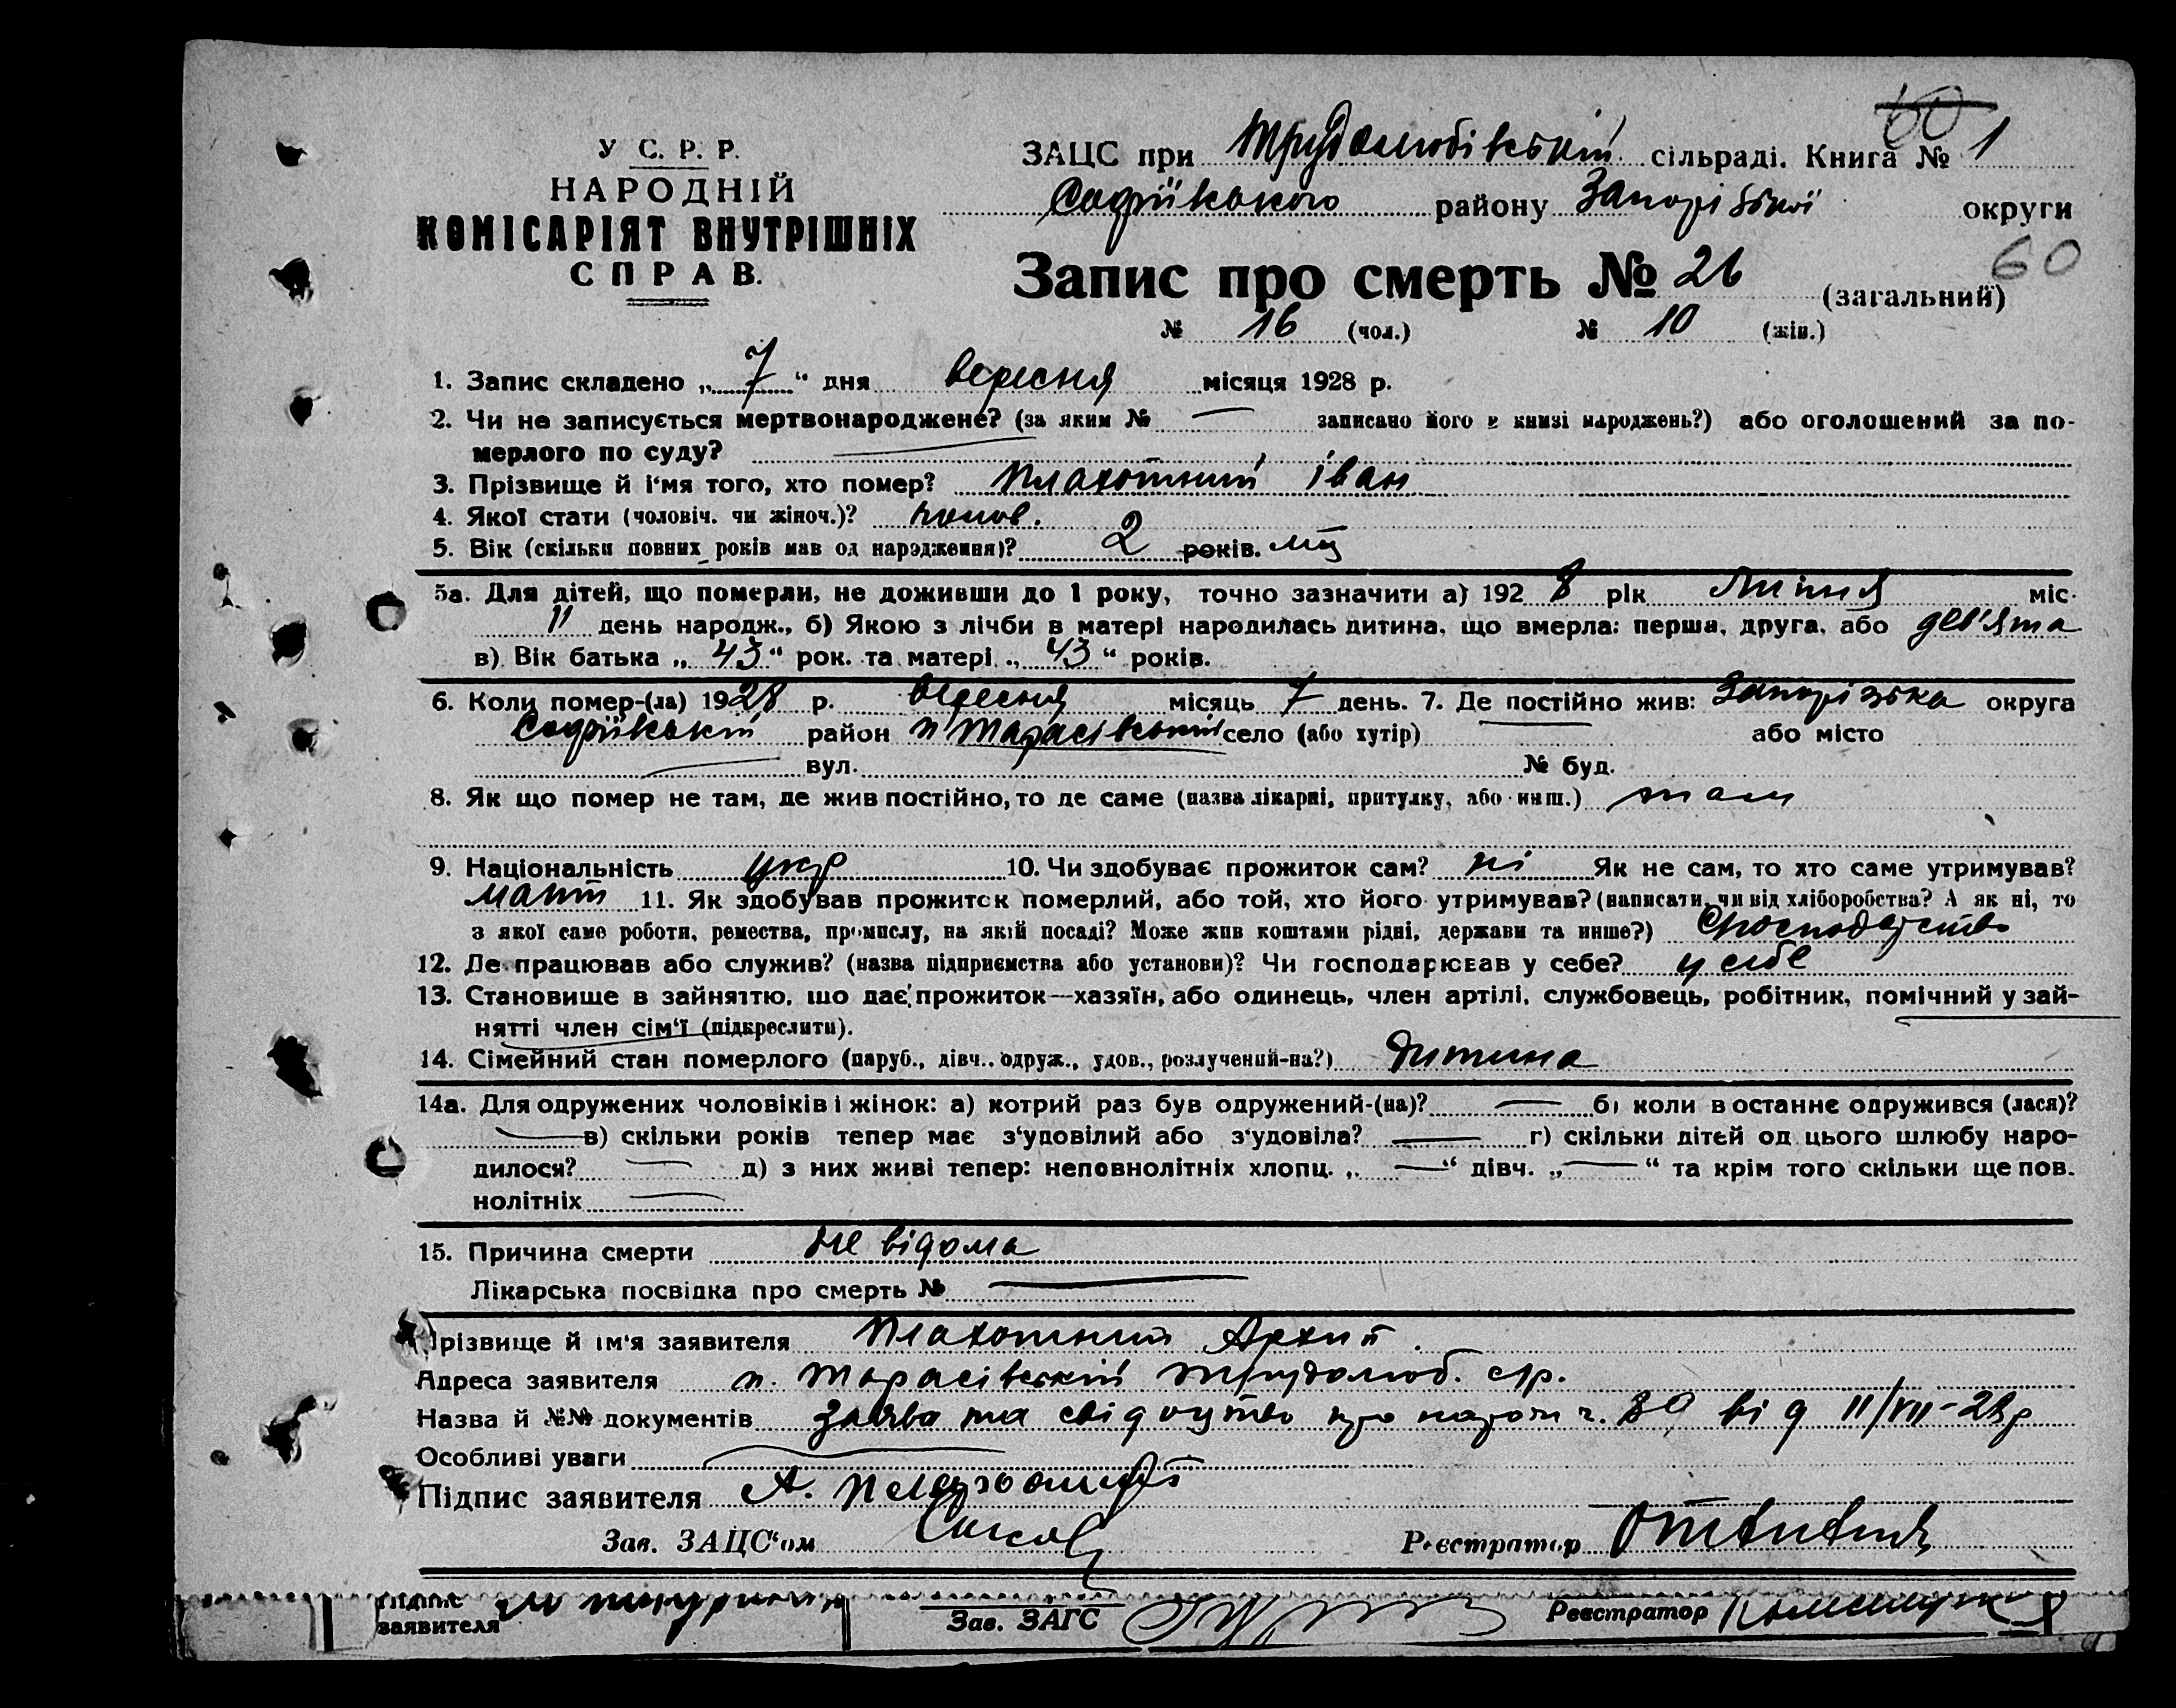 60
У С. Р. Р.
НАРОДНІЙ
КОМІСАРІЯТ ВНУТРІШНІХ
СПРАВ.
ЗАЦС при Трудолюбівській сільраді. Книга № 1
Софіївського району Запорізької округи
60
Запис про смерть № 26 (загальний)
№ 16 (чол.) № 10 (жін.)
1. Запис складено „ 7 “ дня вересня місяця 1928 р.
2. Чи не записується мертвонароджене? (за яким № — записано його в книзі народжень?) або оголошений за по-
мерлого по суду? —
3. Прізвище й ім'я того, хто помер? Плахотний Іван
4. Якої статі (чоловіч. чи жіноч.)? чолов.
5. Вік (скільки повних років мав од народження)? 2 років. міс
5а. Для дітей, що померли, не доживши до 1 року, точно зазначити а) 192 8 рік Липня міс.
11 день народж., б) Якою з лічби в матері народилась дитина, що вмерла: перша, друга, або дев'ята
в) Вік батька „ 43 “ рок. та матері „ 43 “ років.
6. Коли помер-(ла) 1928 р. вересня місяць 7 день. 7. Де постійно жив: Запорізька округа
Софіївський район п Тарасівський село (або хутір) — або місто
— вул. № буд.
8. Як що помер не там, де жив постійно, то де саме (назва лікарні, притулку, або инш.) там
9. Національність укр 10. Чи здобуває прожиток сам? ні Як не сам, то хто саме утримував?
мати 11. Як здобував прожиток померлий, або той, хто його утримував? (написати, чи від хліборобства? А як ні, то
з якої саме роботи, ремества, промислу, на якій посаді? Може жив коштами рідні, держави та инше?)
12. Де працював або служив? (назва підприємства або установи)? Чи господарював у себе? у себе
13. Становище в зайняттю, що дає прожиток—хазяїн, або одинець, член артілі, службовець, робітник, помічний у зай-
нятті член сім'ї (підкреслити).
14. Сімейний стан померлого (паруб., дівч., одруж., удов., розлучений-на?) дитина
14а. Для одружених чоловіків і жінок: а) котрий раз був одружений-(на)? — б) коли в останнє одружився (лася)?
— в) скільки років тепер має з'удовілий або з'удовіла? — г) скільки дітей од цього шлюбу наро-
дилося? — д) з них живі тепер: неповнолітніх хлопц. „ — “ дівч. „ — “ та крім того скільки ще пов.
нолітніх —
15. Причина смерти Не відома
Лікарська посвідка про смерть № —
Прізвище й ім'я заявителя Плахотний Архип
Адреса заявителя п. Тарасівський Трудолюб. с/р.
Назва й №№ документів Заява та свідоцтво про народж ч. 30 від 11/VII-28р
Особливі уваги —
Підпис заявителя А. Плахотний
Зав. ЗАЦС'ом Реєстратор
Підпис
заявителя
Зав. ЗАГС Реєстратор